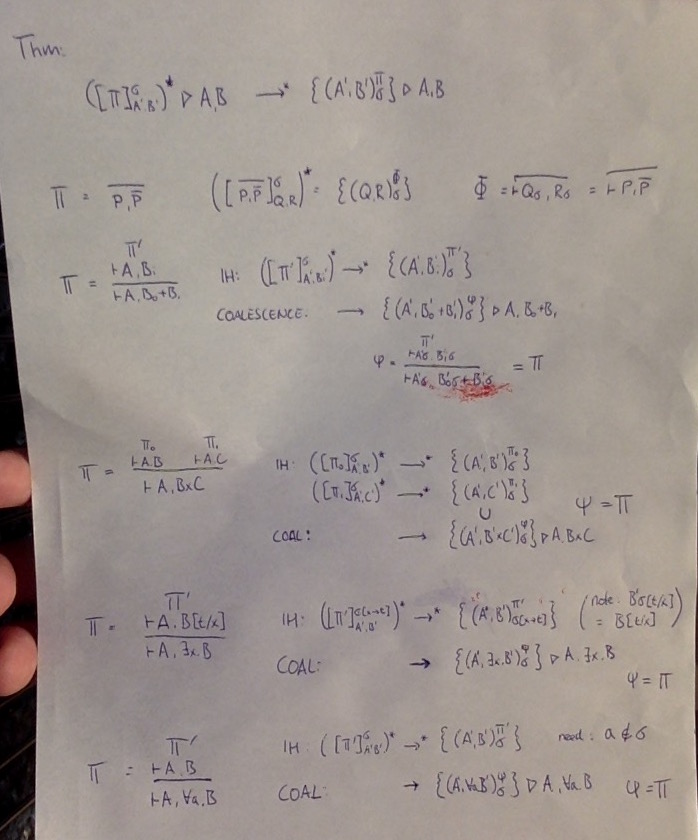 Thm:
([Π]^σ_{A',B'})^* ▷ A,B →^* {(A',B')^Π_σ} ▷ A,B
Π = \overline{P, \overline{P}} ([\overline{P,\overline{P}}]^σ_{Q,R})^* = {(Q,R)^Φ_σ} Φ = \overline{⊢Qσ, Rσ} = \overline{⊢P, \overline{P}}
Π'
Π = ⊢A,B_i / ⊢A, B_0+B_1 IH: ([Π']^σ_{A',B_i'})^* →^* {(A',B_i')^{Π'}_σ}
COALESCENCE. → {(A', B_0'+B_1')^φ_σ} ▷ A, B_0+B_1
φ = Π' ⊢A'σ, B_i'σ / ⊢A'σ, B_0'σ+B_1'σ = Π
Π_0 Π_1
Π = ⊢A,B ⊢A,C / ⊢A, B×C IH: ([Π_0]^σ_{A',B'})^* →^* {(A',B')^{Π_0}_σ}
([Π_1]^σ_{A',C'})^* →^* {(A',C')^{Π_1}_σ} ψ = Π
∪
COAL: → {(A', B'×C')^φ_σ} ▷ A, B×C
Π'
Π = ⊢A, B[t/x] / ⊢A, ∃x.B IH: ([Π']^{σ[x→t]}_{A',B'})^* →^* {(A',B')^{Π'}_{σ[x→t]}} (note: B'σ[t/x] = B[t/x])
COAL: → {(A', ∃x.B')^φ_σ} ▷ A, ∃x.B
ψ = Π
Π'
Π = ⊢A,B / ⊢A, ∀a.B IH: ([Π']^σ_{A',B'})^* →^* {(A',B')^{Π'}_σ} need: a ∉ σ
COAL: → {(A, ∀a.B')^φ_σ} ▷ A, ∀a.B φ = Π